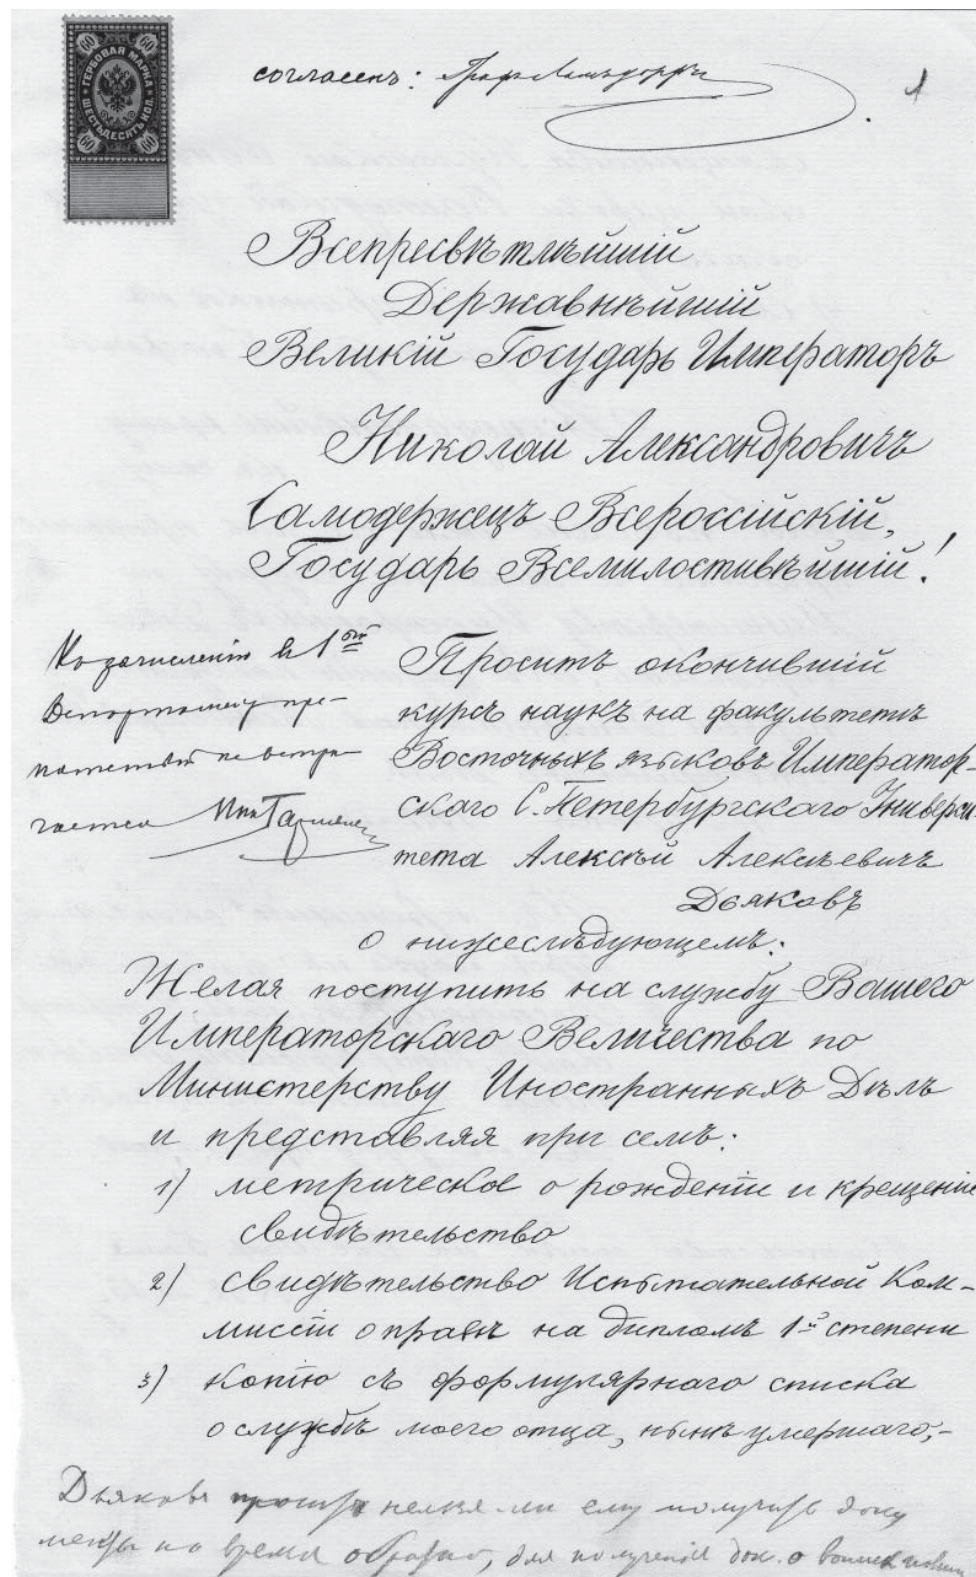 ГЕРБОВАЯ МАРКА
ШЕСТЬДЕСЯТЪ КОП.
60 60
60 60
согласенъ: Графъ Ламздорфъ
1
Всепресвѣтлѣйшій
Державнѣйшій
Великій Государь Императоръ
Николай Александровичъ
Самодержецъ Всероссійскій,
Государь Всемилостивѣйшій!
Къ зачисленію въ 1ый
Департаментъ пре-
пятствій не встрѣ-
чается
Проситъ окончившій
курсъ наукъ на факультетѣ
Восточныхъ языковъ Император-
скаго С. Петербургскаго Универси-
тета Алексѣй Алексѣевичъ
Дьяковъ
о нижеслѣдующемъ:
Желая поступить на службу Вашего
Императорскаго Величества по
Министерству Иностранныхъ Дѣлъ
и представляя при семъ:
1) метрическое о рожденіи и крещеніи
свидѣтельство
2) свидѣтельство Испытательной Ком-
миссіи о правѣ на дипломъ 1й степени
3) копію съ формулярнаго списка
о службѣ моего отца, нынѣ умершаго,-
Дьяковъ проситъ нельзя-ли ему получить доку
менты на время обратно, для полученія док. о воинск